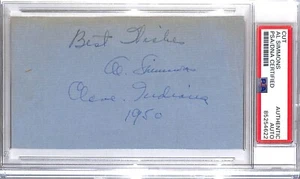 Best Wishes
Al Simmons
Cleve. Indians
1950
CUT
AL SIMMONS
PSA/DNA CERTIFIED
AUTHENTIC
AUTO
85254622
PSA